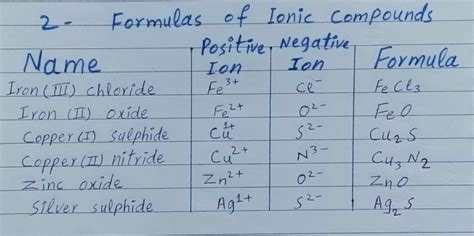 2- Formulas of Ionic Compounds
Name Positive Ion Negative Ion Formula
Iron (III) chloride Fe³⁺ Cl⁻ FeCl₃
Iron (II) oxide Fe²⁺ O²⁻ FeO
Copper (I) sulphide Cu¹⁺ S²⁻ Cu₂S
Copper (II) nitride Cu²⁺ N³⁻ Cu₃N₂
Zinc oxide Zn²⁺ O²⁻ ZnO
Silver sulphide Ag¹⁺ S²⁻ Ag₂S